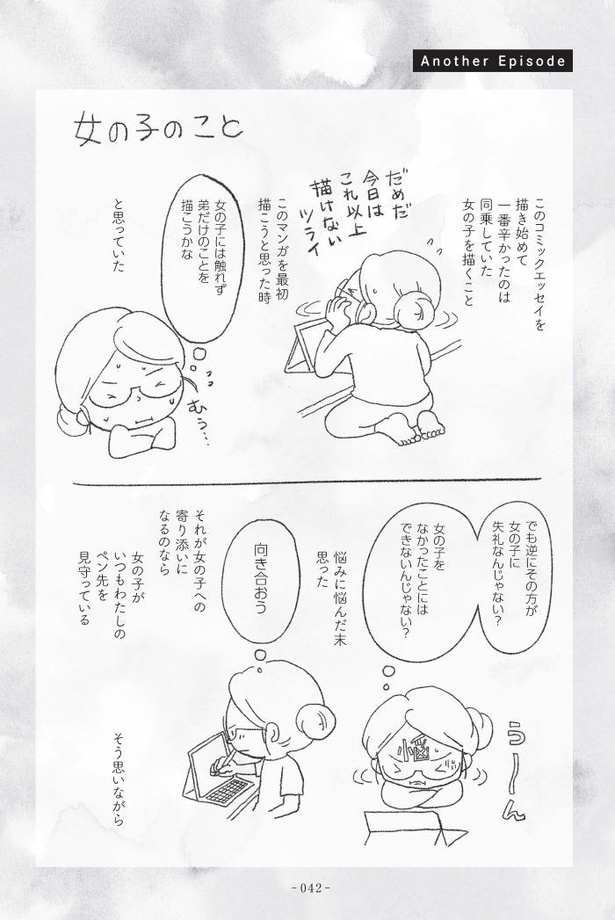 Another Episode
女の子のこと
このコミックエッセイを
描き始めて
一番辛かったのは
同乗していた
女の子を描くこと
だめだ
今日は
これ以上
描けない
ツライ
このマンガを最初
描こうと思った時
女の子には触れず
弟だけのことを
描こうかな
むぅ…
と思っていた
でも逆にその方が
女の子に
失礼なんじゃない?
女の子を
なかったことには
できないんじゃない?
うーん
悩
悩みに悩んだ末
思った
向き合おう
それが女の子への
寄り添いに
なるのなら
女の子が
いつもわたしの
ペン先を
見守っている
そう思いながら
-042-